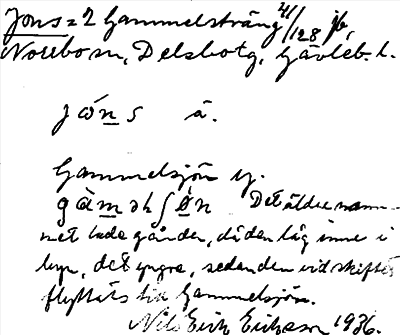 Jons = 2 Gammelsträng 41/128 jb,
Norrbo sn, Delsbotg, Gävleb. l.
jón s å.
Gammelsjön ej.
gàməlʃö̀n Det äldre nam-
net hade gården, då den låg inne i
byn, det yngre, sedan den vid skiftet
flyttats till Gammelsjön.
Nils Erik Eriksson 1936.